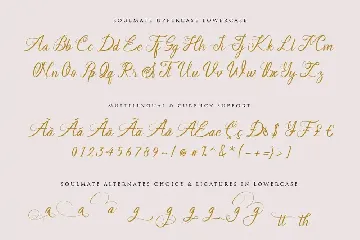 SOULMATE UPPERCASE LOWERCASE
Aa Bb Cc Dd Ee Ff Gg Hh Ii Jj Kk Ll Mm
Nn Oo Pp Qq Rr Ss Tt Uu Vv Ww Xx Yy Zz
MULTILINGUAL & CURRENCY SUPPORT
0123456789
SOULMATE ALTERNATES CHOICE & LIGATURES IN LOWERCASE
a a a g g g g g g tt th